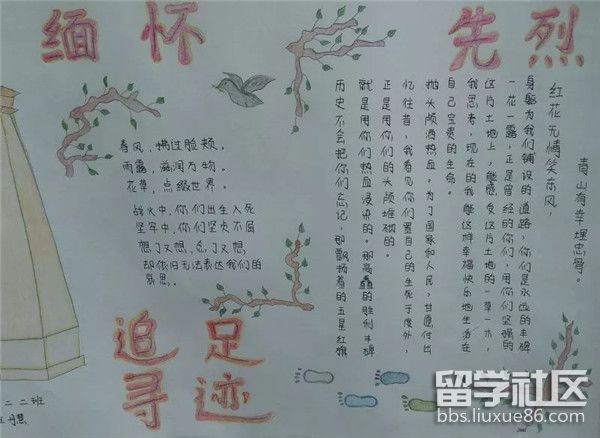 缅怀
先烈
春风，拂过脸颊。
雨露，滋润万物。
花草，点缀世界。
战火中，你们出生入死
坚牢中，你们坚贞不屈
想了又想，忘了又想，
却依旧无法表达我们的
哀思。
历史不会把你们忘记，那飘扬着的五星红旗
就是用你们热血浸染的。那高矗的胜利丰碑
正是用你们的头颅堆砌的。
忆往昔，我看见你们置自己的生死于度外，
抛头颅洒热血，为了国家和人民，甘愿付出
自己宝贵的生命。
我思考，现在的我能这样幸福快乐地生活在
这片土地上，能感受这片土地的一草一木，
一花一露，正是曾经的你们，用你们坚强的
身躯为我们铺设的道路，你们是永远的丰碑
红花无情笑东风，
青山有幸埋忠骨。
追寻
足迹
二二班
丹慧
留学社区
bbs.liuxue86.com